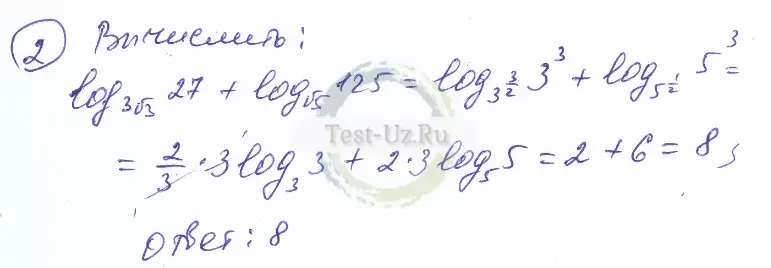 2 Вычислить:
log_{3√3} 27 + log_{√5} 125 = log_{3^{3/2}} 3^3 + log_{5^{1/2}} 5^3 =
Test-Uz.Ru
= 2/3 · 3 log_3 3 + 2 · 3 log_5 5 = 2 + 6 = 8;
ответ: 8